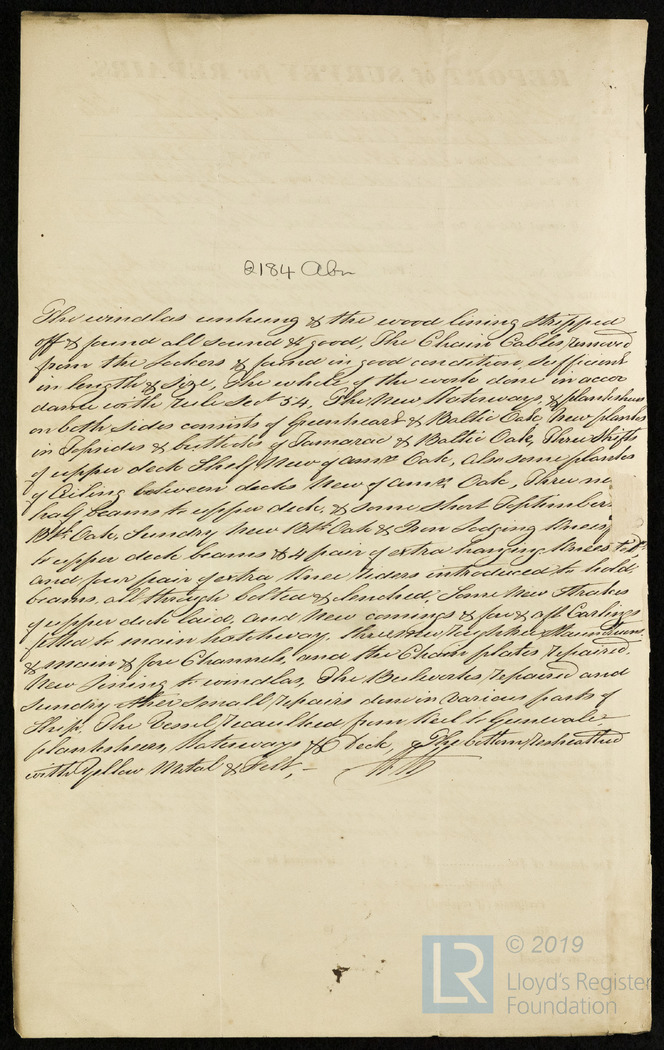 REPORT of SURVEY for REPAIRS.
2184 Abn
The windlas unhung & the wood lining stripped
off & found all sound & good, The Chain Cables removed
from the Lockers & found in good condition, sufficient
in length & size, The whole of the work done in accor
dance with rule Sect 54. The New Waterways, & planksheers
on both sides consists of Greenheart & Baltic Oak New planks
in Topsides & of Tamarac & Baltic Oak, Three Shifts
of upper deck Shelf New of amn Oak, also some planks
of Ceiling between decks New of amn Oak, Three ne
half beams to upper deck, & some short
Bth Oak, Sundry New Bth Oak & Iron Lodging Knees
to upper deck beams & 4 pair of extra hanging Knees to
and four pair of extra Knee riders introduced to hold
beams, all through bolted & clenched, Some New Strakes
of upper deck laid, and New comings & fore & aft Carlings
fitted to main hatchway. three New
& main & fore Channels, and the Chain plates repaired.
New Lining to windlas, The Bulwarks repaired and
Sundry other small repairs done in various parts of
Ship, The Vessel recaulked from Keel to Gunwale
planksheers, Waterways & Deck, & The bottom resheathed
with Yellow Metal & Felt,-
LR
© 2019
Lloyd's Register
Foundation